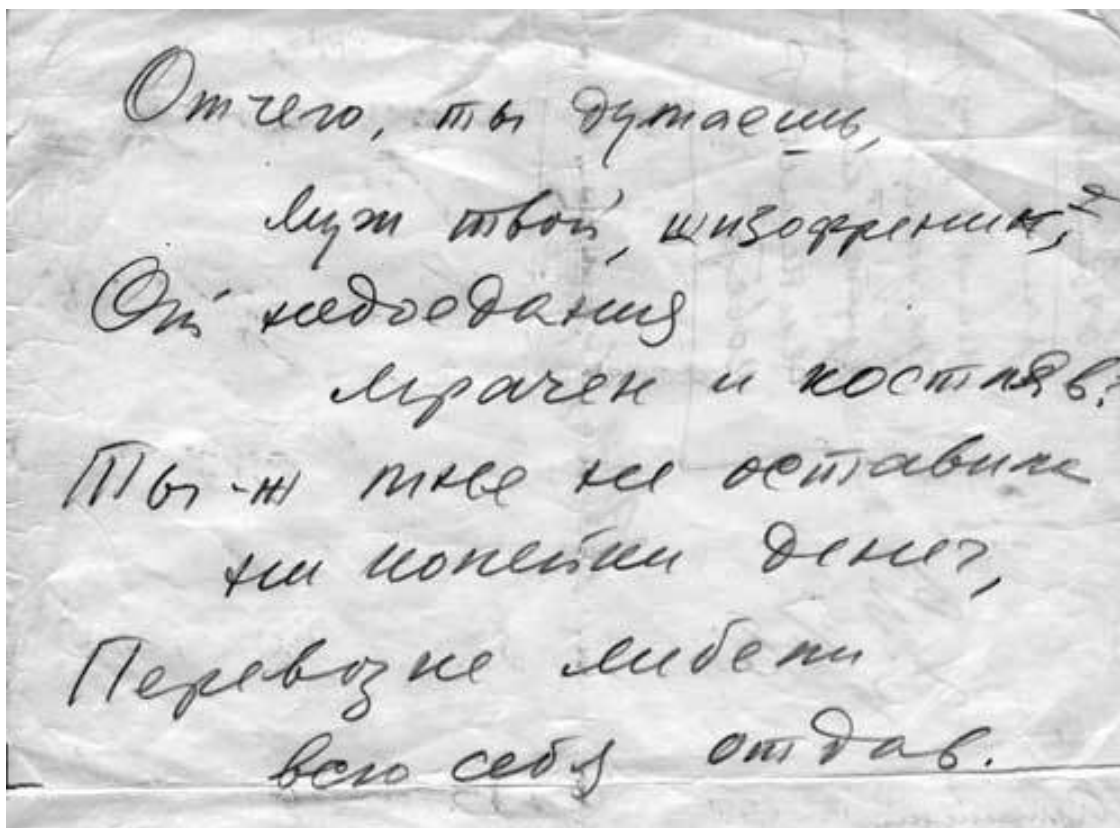 Отчего, ты думаешь,
муж твой, шизофреник,
От недоедания
мрачен и костляв?
Ты-ж мне не оставила
ни копейки денег,
Перевозке мебели
всю себя отдав.